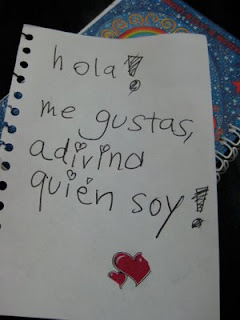 hola!
me gustas,
adivina
quién soy!